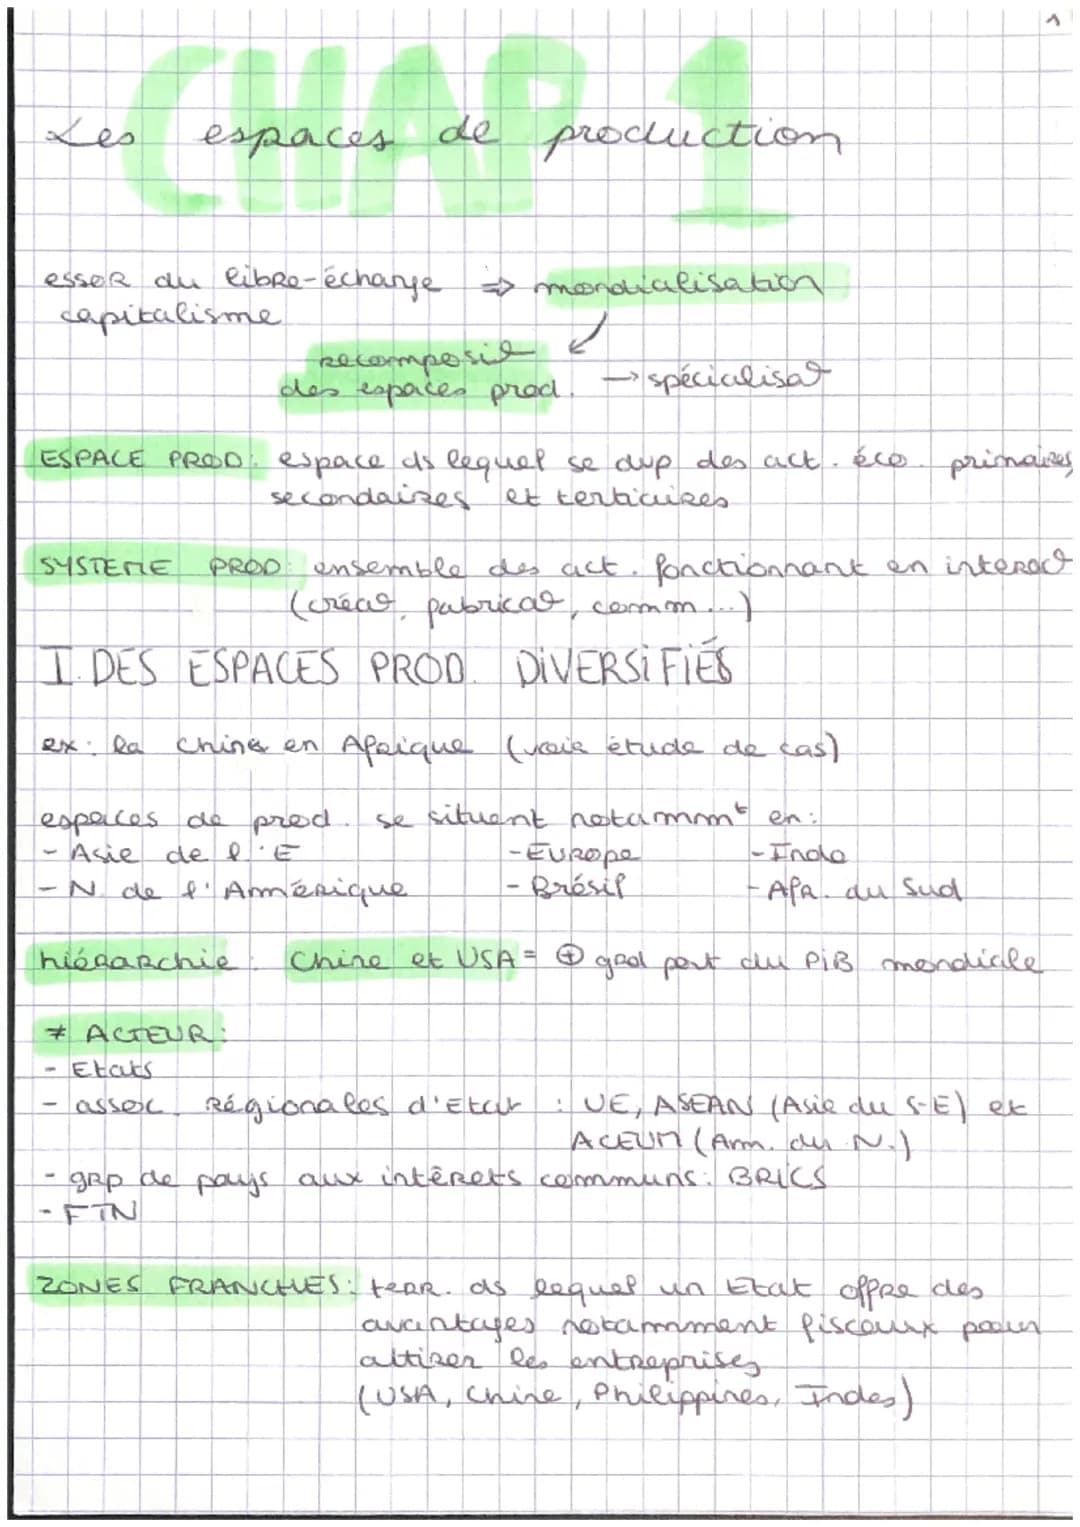 1
CHAP 1
Les espaces de production
essor du libre-échange ⇒ mondialisation
capitalisme
recomposit°
des espaces prod. → spécialisat°
ESPACE PROD: espace ds lequel se dvp des act. éco. primaires,
secondaires et tertiaires
SYSTEME PROD: ensemble des act. fonctionnant en interact°
(créat°, fabricat°, comm...)
I. DES ESPACES PROD. DIVERSIFIÉS
ex: la Chine en Afrique (voir étude de cas)
espaces de prod. se situent notammt en:
- Asie de l'E - Europe - Inde
- N. de l'Amérique - Brésil - Afr. du Sud
hiérarchie: Chine et USA = ⊕ grd part du PIB mondiale
≠ ACTEUR:
- Etats
- assoc. régionales d'Etat : UE, ASEAN (Asie du S-E) et
ACEUM (Am. du N.)
- grp de pays aux intérêts communs: BRICS
- FTN
ZONES FRANCHES: terr. ds lequel un Etat offre des
avantages notamment fiscaux pour
attirer les entreprises
(USA, Chine, Philippines, Indes)